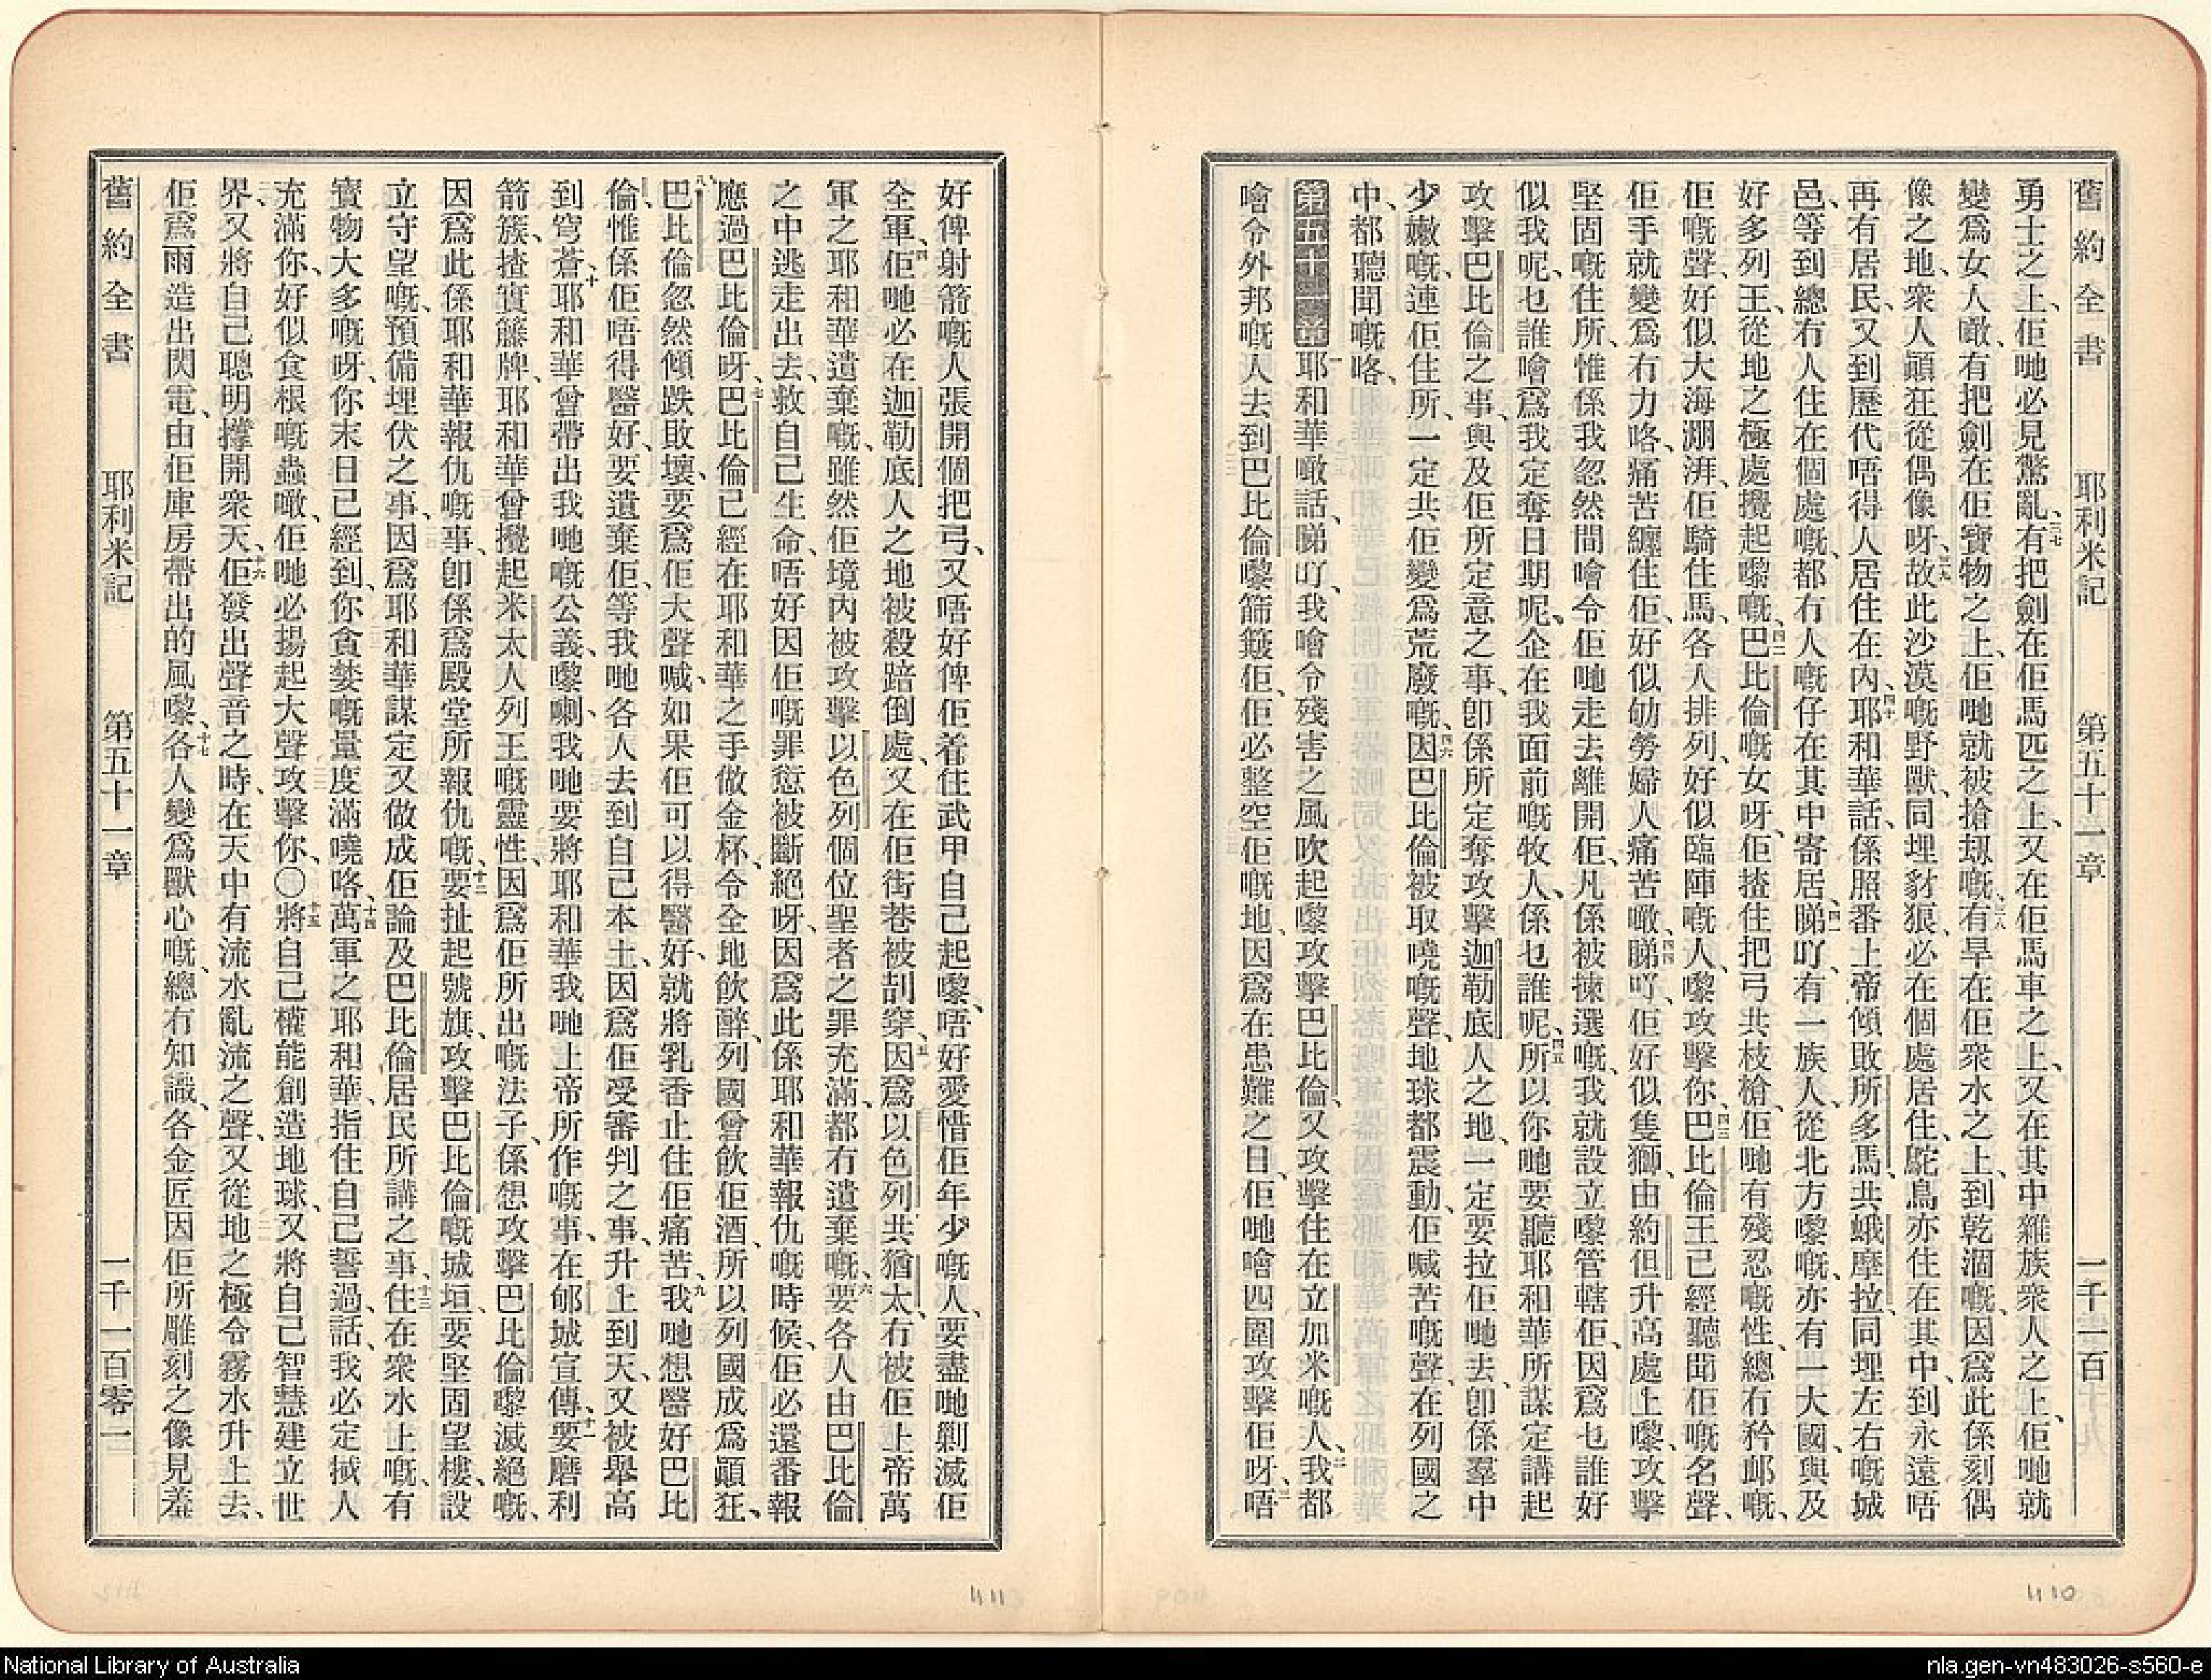 舊約全書 耶利米記 第五十一章 一千一百
勇士之上、佢哋必見驚亂、三七有把劍在佢馬匹之上、又在佢馬車之上、又在其中雜族衆人之上、佢哋就
變爲女人噉、有把劍在佢寶物之上、佢哋就被搶刼嘅、三八有旱在佢衆水之上、到乾涸嘅、因爲此係刻偶
像之地、衆人顚狂從偶像呀、三九故此沙漠嘅野獸、同埋豺狼、必在個處居住、鴕鳥亦住在其中、到永遠唔
再有居民、又到歷代唔得人居住在內、四十耶和華話、係照番上帝傾敗所多馬、共蛾摩拉、同埋左右嘅城
邑、等到總冇人住在個處嘅、都冇人嘅仔在其中寄居、四一睇吖、有一族人、從北方嚟嘅、亦有一大國、與及
好多列王、從地之極處攪起嚟嘅、四二巴比倫嘅女呀、佢揸住把弓共枝槍、佢哋有殘忍嘅性、總冇矜邺嘅、
佢嘅聲、好似大海淜湃、佢騎住馬、各人排列、好似臨陣嘅人、嚟攻擊你、四三巴比倫王已經聽聞佢嘅名聲、
佢手就變爲冇力咯、痛苦纏住佢、好似劬勞婦人痛苦噉、四四睇吖、佢好似隻獅、由約但升高處上嚟、攻擊
堅固嘅住所、惟係我忽然間噲令佢哋走去離開佢、凡係被揀選嘅、我就設立嚟管轄佢、因爲乜誰好
似我呢、乜誰噲爲我定奪日期呢、企在我面前嘅牧人、係乜誰呢、四五所以你哋要聽耶和華所謀定講起
攻擊巴比倫之事、與及佢所定意之事、卽係所定奪攻擊迦勒底人之地、一定要拉佢哋去、卽係羣中
少嫩嘅、連佢住所、一定共佢變爲荒廢嘅、四六因巴比倫被取嘵嘅聲、地球都震動、佢喊苦嘅聲、在列國之
中、都聽聞嘅咯、
第五十一章一耶和華噉話、睇吖、我噲令殘害之風吹起嚟攻擊巴比倫、又攻擊住在立加米嘅人、二我都
噲令外邦嘅人去到巴比倫嚟篩簸佢、佢必整空佢嘅地、因爲在患難之日、佢哋噲四圍攻擊佢呀、三唔
好俾射箭嘅人張開個把弓、又唔好俾佢着住武甲自己起嚟、唔好愛惜佢年少嘅人、要盡哋剿滅佢
全軍、四佢哋必在迦勒底人之地被殺踣倒處、又在佢街巷被刮穿、五因爲以色列共猶太冇被佢上帝萬
軍之耶和華遺棄嘅、雖然佢境內被攻擊以色列個位聖者之罪充滿、都冇遺棄嘅、六要各人由巴比倫
之中逃走出去、救自己生命、唔好因佢嘅罪愆被斷絕呀、因爲此係耶和華報仇嘅時候、佢必還番報
應過巴比倫呀、七巴比倫已經在耶和華之手做金杯、令全地飮醉、列國曾飮佢酒、所以列國成爲顚狂、
八巴比倫忽然傾跌敗壞、要爲佢大聲喊、如果佢可以得醫好、就將乳香止住佢痛苦、九我哋想醫好巴比
倫、惟係佢唔得醫好、要遺棄佢、等我哋各人去到自己本土、因爲佢受審判之事、升上到天、又被舉高
到穹蒼、十耶和華曾帶出我哋嘅公義嚟喇、我哋要將耶和華我哋上帝所作嘅事、在郇城宣傳、十一要磨利
箭簇、揸實籐牌、耶和華曾攪起米太人列王嘅靈性、因爲佢所出嘅法子、係想攻擊巴比倫嚟滅絕嘅、
因爲此係耶和華報仇嘅事、卽係爲殿堂所報仇嘅、十二要扯起號旗、攻擊巴比倫嘅城垣、要堅固望樓、設
立守望嘅、預備埋伏之事、因爲耶和華謀定又做成佢論及巴比倫居民所講之事、十三住在衆水上嘅、有
寶物大多嘅呀、你末日已經到、你貪婪嘅量度滿嘵咯、十四萬軍之耶和華、指住自己誓過、話、我必定𢫏人
充滿你、好似食根嘅蟲噉、佢哋必揚起大聲攻擊你、〇十五將自己權能創造地球、又將自己智慧建立世
界、又將自己聰明撑開衆天、十六佢發出聲音之時、在天中有流水亂流之聲、又從地之極令霧水升上去、
佢爲雨造出閃電、由佢庫房帶出的風嚟、十七各人變爲獸心嘅、總冇知識、各金匠因佢所雕刻之像見羞
舊約全書 耶利米記 第五十一章 一千一百零一
1110
1111
National Library of Australia
nla.gen-vn483026-s560-e